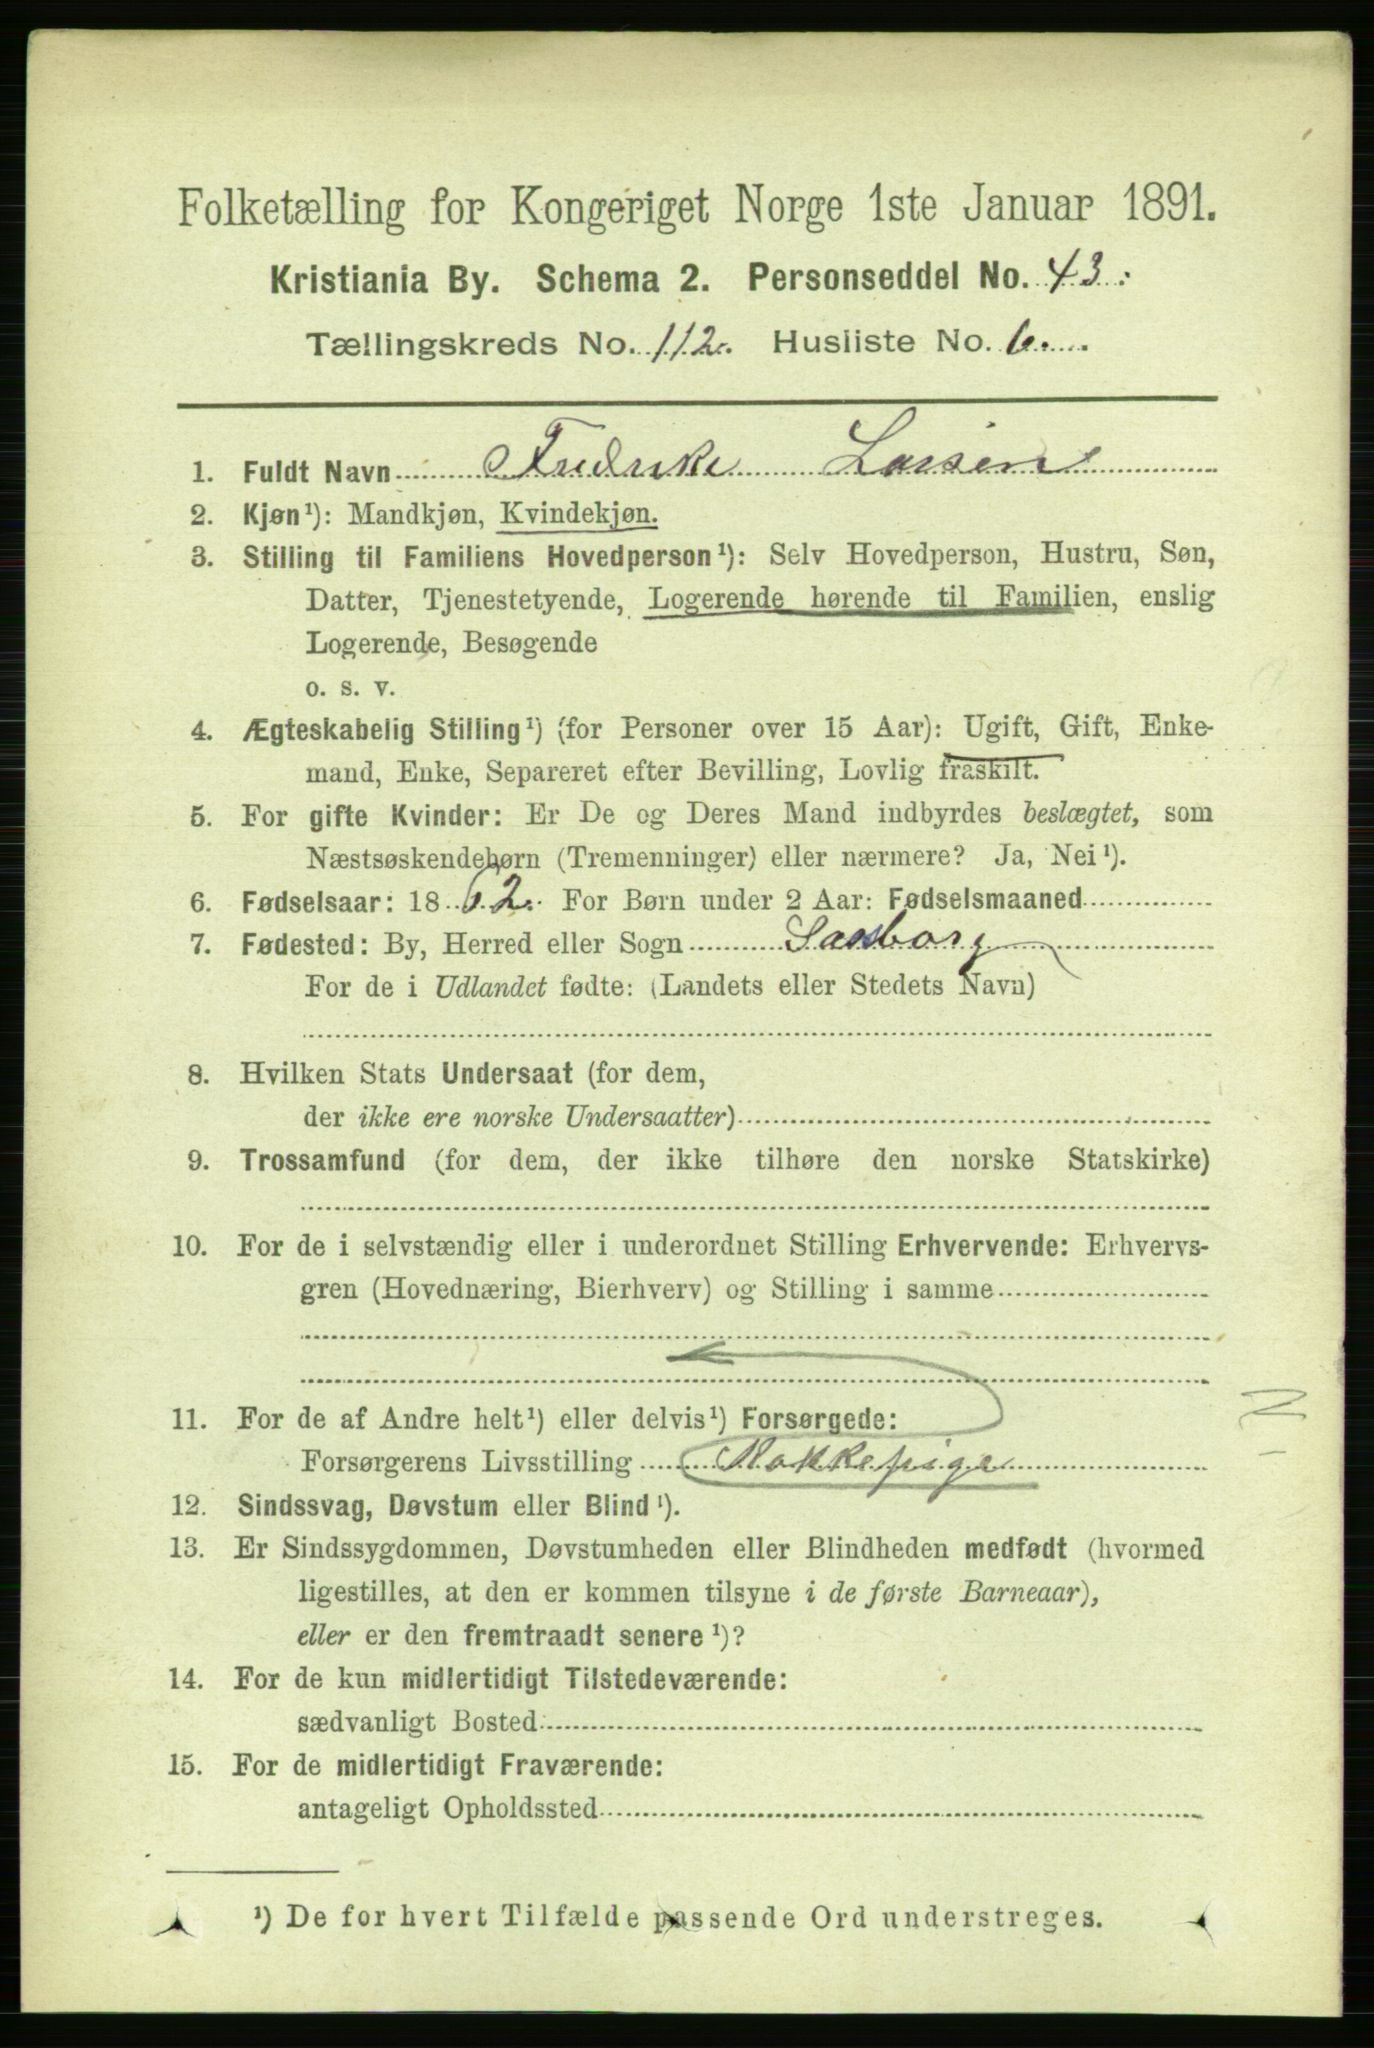 Folketælling for Kongeriget Norge 1ste Januar 1891.
Kristiania By. Schema 2. Personseddel No. 43.
Tællingskreds No. 112. Husliste No. 6.
1. Fuldt Navn Fredrike Larsen
2. Kjøn¹): Mandkjøn, Kvindekjøn.
3. Stilling til Familiens Hovedperson¹): Selv Hovedperson, Hustru, Søn,
Datter, Tjenestetyende, Logerende hørende til Familien, enslig
Logerende, Besøgende
o. s. v.
4. Ægteskabelig Stilling¹) (for Personer over 15 Aar): Ugift, Gift, Enke-
mand, Enke, Separeret efter Bevilling, Lovlig fraskilt.
5. For gifte Kvinder: Er De og Deres Mand indbyrdes beslægtet, som
Næstsøskendebørn (Tremenninger) eller nærmere? Ja, Nei¹).
6. Fødselsaar: 1862. For Børn under 2 Aar: Fødselsmaaned
7. Fødested: By, Herred eller Sogn Sarsborg
For de i Udlandet fødte: (Landets eller Stedets Navn)
8. Hvilken Stats Undersaat (for dem,
der ikke ere norske Undersaatter)
9. Trossamfund (for dem, der ikke tilhøre den norske Statskirke)
10. For de i selvstændig eller i underordnet Stilling Erhvervende: Erhvervs-
gren (Hovednæring, Bierhverv) og Stilling i samme
11. For de af Andre helt¹) eller delvis¹) Forsørgede:
Forsørgerens Livsstilling Kokkepige
12. Sindssvag, Døvstum eller Blind¹).
13. Er Sindssygdommen, Døvstumheden eller Blindheden medfødt (hvormed
ligestilles, at den er kommen tilsyne i de første Barneaar),
eller er den fremtraadt senere¹)?
14. For de kun midlertidigt Tilstedeværende:
sædvanligt Bosted
15. For de midlertidigt Fraværende:
antageligt Opholdssted
¹) De for hvert Tilfælde passende Ord understreges.